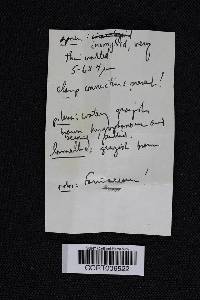 spores:
smooth, very
thin walled
5-6 x 4 µ
clamp connections present!
pileus: watery grayish
brown hygrophanous and
lamellae: grayish brown
odor: farinaceous!
CORT006522